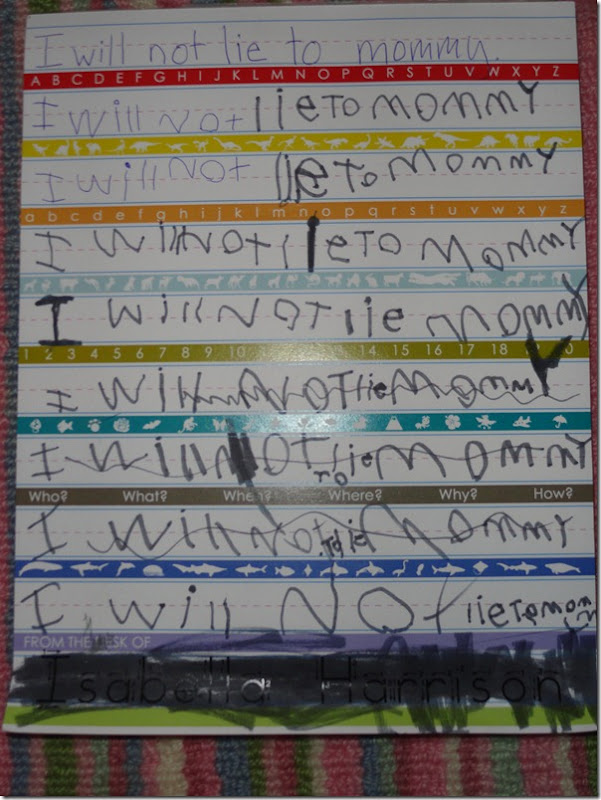 I will not lie to mommy.
A B C D E F G H I J K L M N O P Q R S T U V W X Y Z
I will Not lie To mommy
I will Not lie To Mommy
a b c d e f g h i j k l m n o p q r s t u v w x y z
I will Not lie To Mommy
I will NOT lie mommy
1 2 3 4 5 6 7 8 9 10 11 12 13 14 15 16 17 18 19 20
I will NOT lie Mommy
I will NOT To lie Mommy
Who? What? When? Where? Why? How?
I will Not To lie Mommy
I will NOt lie To mom
FROM THE DESK OF
Isabella Harrison